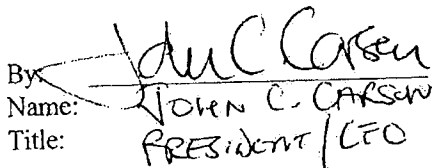 By: John C Carson
Name: JOHN C. CARSON
Title: PRESIDENT / CEO